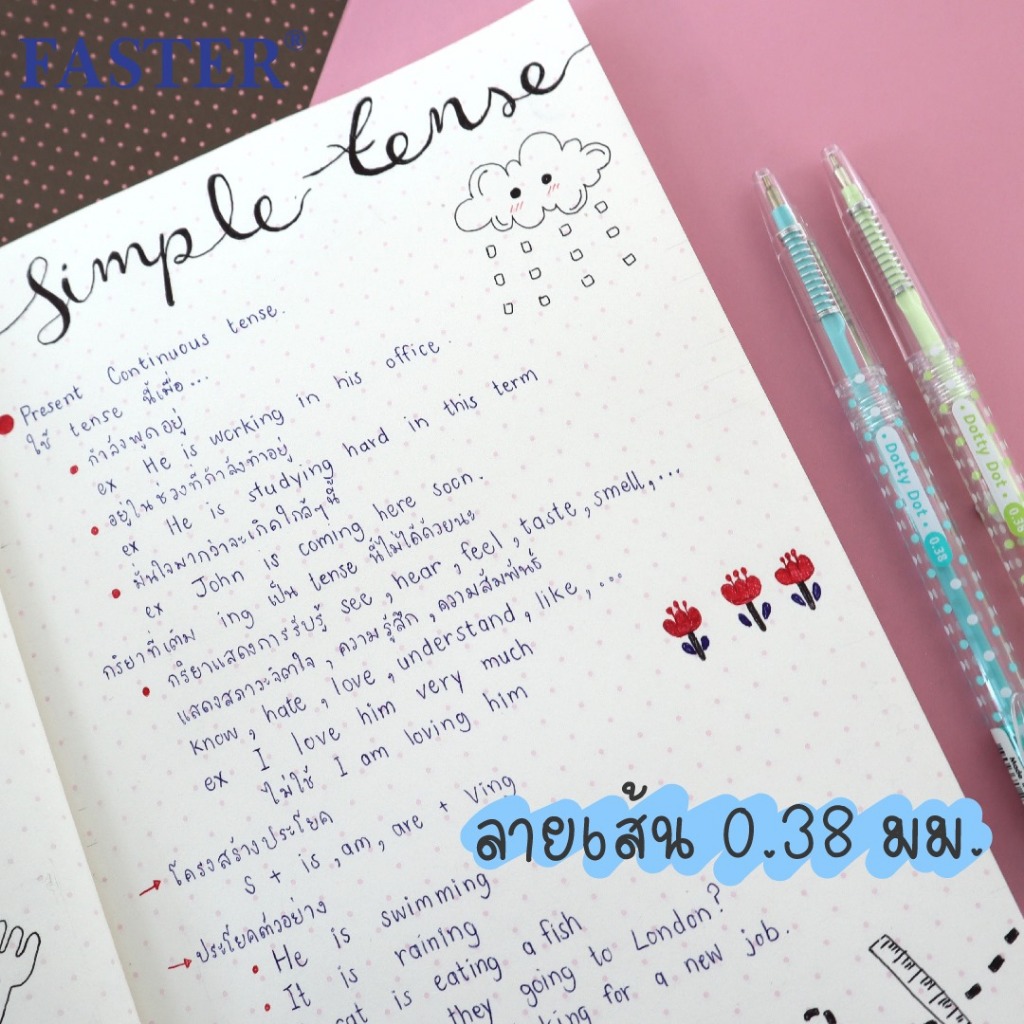 FASTER®
Simple tense
Present Continuous tense.
ใช้ tense นี้เมื่อ...
กำลังพูดอยู่
ex He is working in his office.
อยู่ในช่วงที่กำลังทำอยู่
ex He is studying hard in this term
มั่นใจมากว่าจะเกิดใกล้ๆนี้
ex John is coming here soon.
กริยาที่เติม ing เป็น tense นี้ไม่ได้ด้วยนะ
กริยาแสดงการรับรู้ see, hear, feel, taste, smell,...
แสดงสภาวะจิตใจ, ความรู้สึก, ความสัมพันธ์
know, hate, love, understand, like,...
ex I love him very much
ไม่ใช้ I am loving him
โครงสร้างประโยค
S + is, am, are + Ving
ประโยคตัวอย่าง
He is swimming
It is raining
is eating a fish
they going to London?
for a new job.
ลายเส้น 0.38 มม.
Dotty Dot 0.38
Dotty Dot 0.38